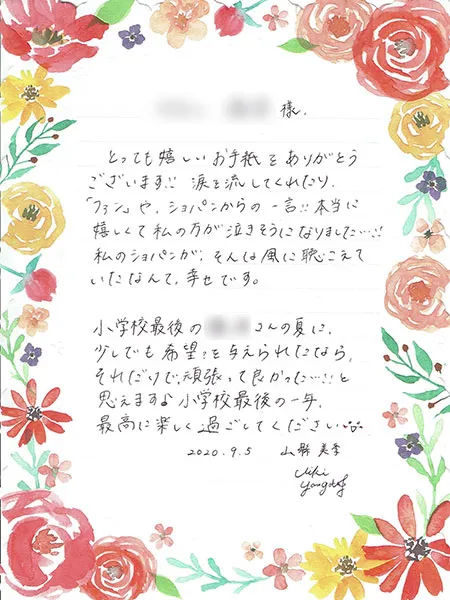 様.
とっても嬉しいお手紙をありがとう
ございます!! 涙を流してくれたり、
「ファン」や、ショパンからの一言!! 本当に
嬉しくて私の方が泣きそうになりました…!!
私のショパンが、そんな風に聴こえて
いたなんて、幸せです。
小学校最後の さんの夏に、
少しでも希望を与えられたなら、
それだけで、頑張って良かった…!! と
思えます♪小学校最後の一年、
最高に楽しく過ごしてください
2020.9.5 山縣 美季
Miki
Yamagata